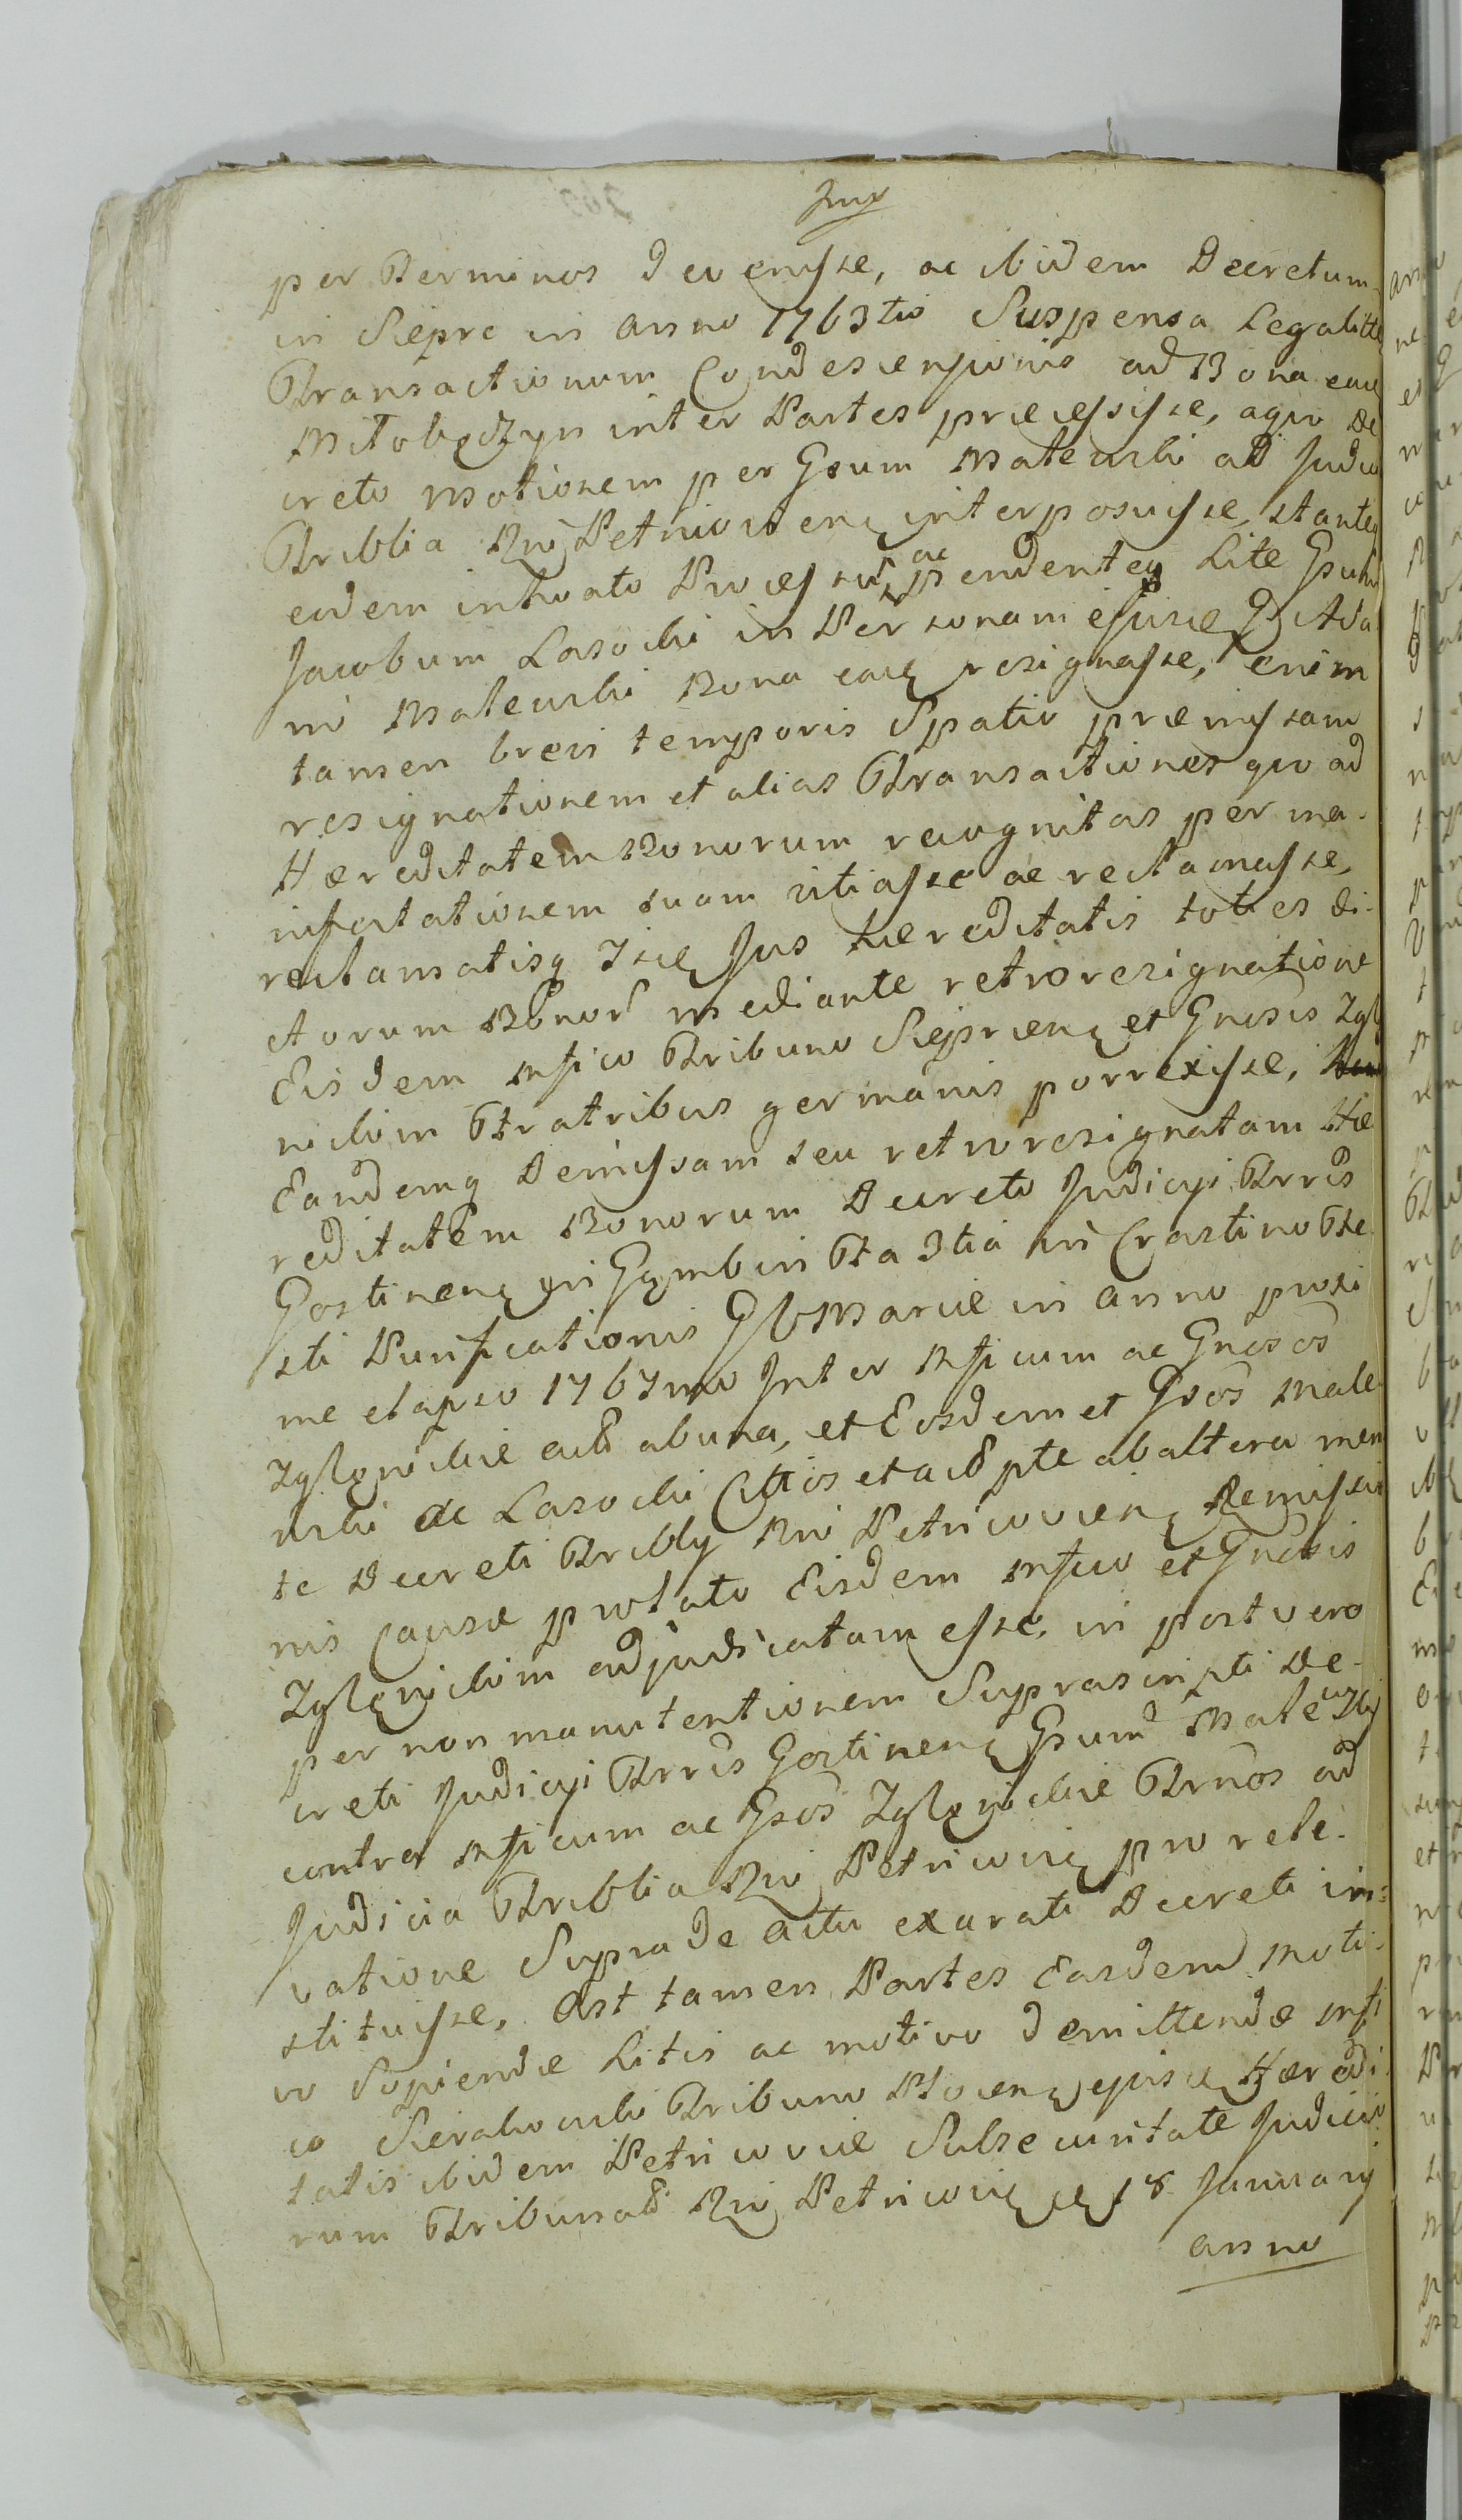 per Terminos devenisse, ac ibidem Decretum
in Sieprc in anno 1763tio Suspensa Legalitte
Transactionum Condescensionis ad Bona eaq
Miłobędzyn inter Partes præcessisse, a quo De
creto Motionem per Gsum Malewski ad Judicia
Triblia Rni Petricovienq interposuisse, stanteq
eodem intuoto Processu, ac pendenteq Lite Gsum
Jacobum Lasocki in Personam ejusq G Ada
mi Malewski Bona eaq resignasse, enim
tamen brevi temporis Spatio præmissam
resignationem et alias Transactiones quoad
Hæreditatem Bonorum recognitas per ma-
nifestationem suam vitiasse ac reclamasse,
reclamatisq Jus hæreditatis toties di-
ctorum Bonor mediante retroresignatione
Eisdem Mfico Tribuno Sieprcenq et Gnosis Zgl
nickim Fratribus germanis porrexisse,
Eandemq Demissam seu retroresignatam Hæ
reditatem Bonorum Decreto Judicyi Trris
Gostinenq in Gąmbin Fa 3tia in Crastino Fe
sti Purificationis GVMariæ in anno proxi
me elapso 1767mo Inter Mficum ac Gnosos
Zglenickie actt ab una, et Eosdem et Gsos Male
wski ac Lasocki Cittos et act pte ab altera men
te Decreti Triblly Rni Petricovienq Remissio
nis Causæ prolato Eisdem Mfico et Gnosis
Zglenickim adjudicatam esse, in post vero
per non manutentionem Suprascripti De-
creti Judicyi Trris Gostinenq Gsum Malewski
contra Mficum ac Gsos Zglenickie Frnos ad
Judicia Triblia Rni Petricoviq pro rele-
vatione Supra de actu exarati Decreti in-
stituisse, Ast tamen Partes Easdem moti-
vo Sopiendæ Litis ac motivo demittendæ Mfi
co Sierakowski Tribuno Plocenq ejusq Hæredi
tatis ibidem Petricoviæ Subsecuritate Judicio
rum Tribunalt Rni Petricoviq 18 January
anno